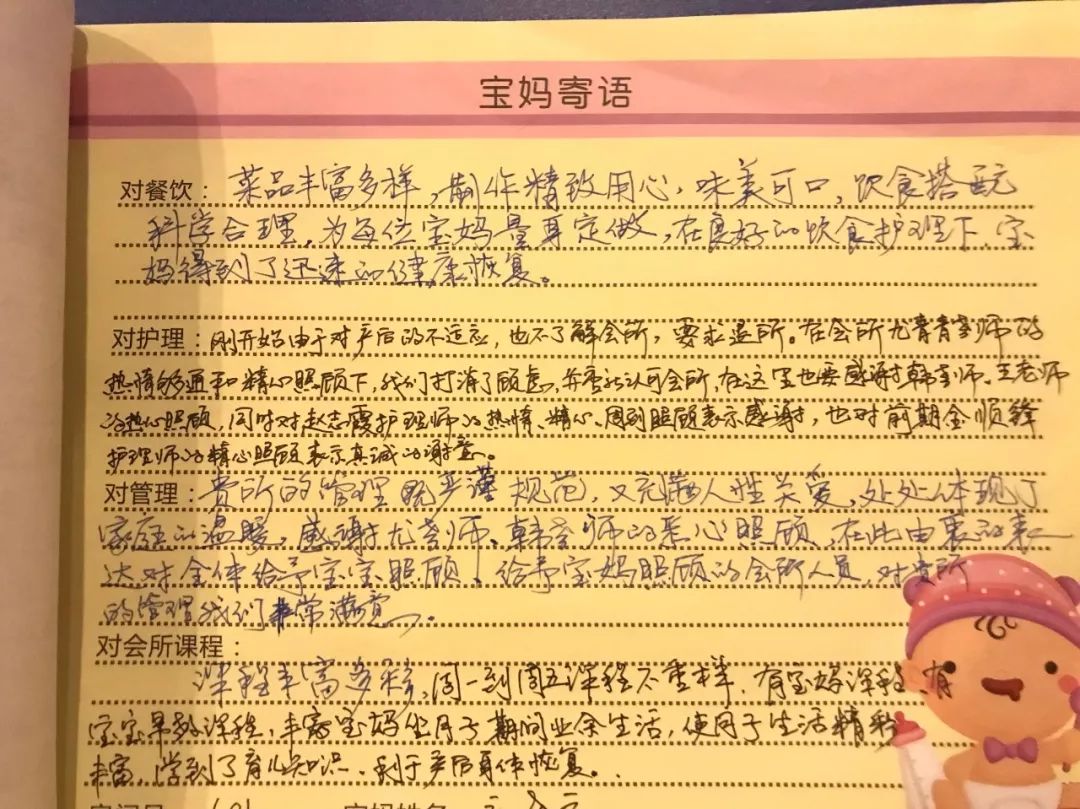 宝妈寄语
对餐饮：菜品丰富多样，制作精致用心，味美可口，饮食搭配
科学合理，为每位宝妈量身定做，在良好的饮食护理下，宝
妈得到了迅速的健康恢复。
对护理：刚开始由于对产后的不适应，也不了解会所，要求退所。在会所尤青青老师的
热情沟通和精心照顾下，我们打消了顾虑，并重新认可会所，在这里也要感谢韩老师、王老师
的热心照顾，同时对赵志霞护理师的热情、精心、周到照顾表示感谢，也对前期金顺锋
护理师的精心照顾表示真诚的谢意。
对管理：贵所的管理既严谨规范，又充满人性关爱，处处体现了
家庭的温暖，感谢尤老师、韩老师的悉心照顾，在此由衷的表
达对全体给予宝宝照顾！给予宝妈照顾的会所人员，对贵所
的管理我们非常满意。
对会所课程：
课程丰富多彩，周一到周五课程不重样，有宝妈课程，有
宝宝早教课程，丰富宝妈坐月子期间业余生活，使月子生活精彩
丰富，学到了育儿知识，利于产后身体恢复。